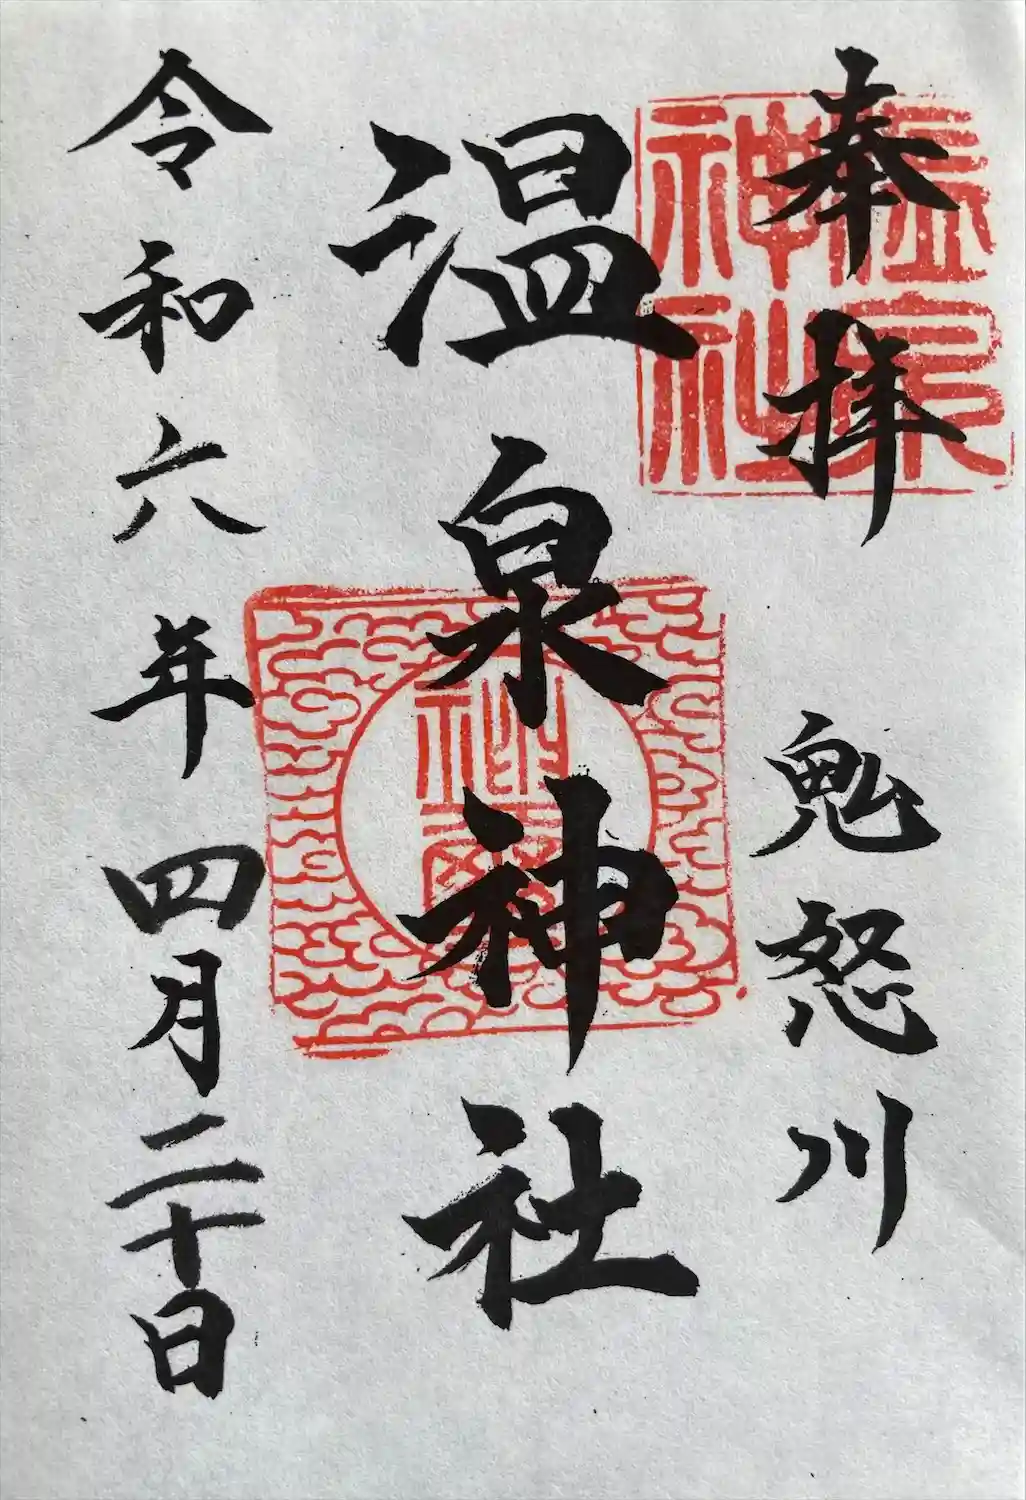 奉拝
鬼怒川
温泉神社
令和六年四月二十日
温泉
神社